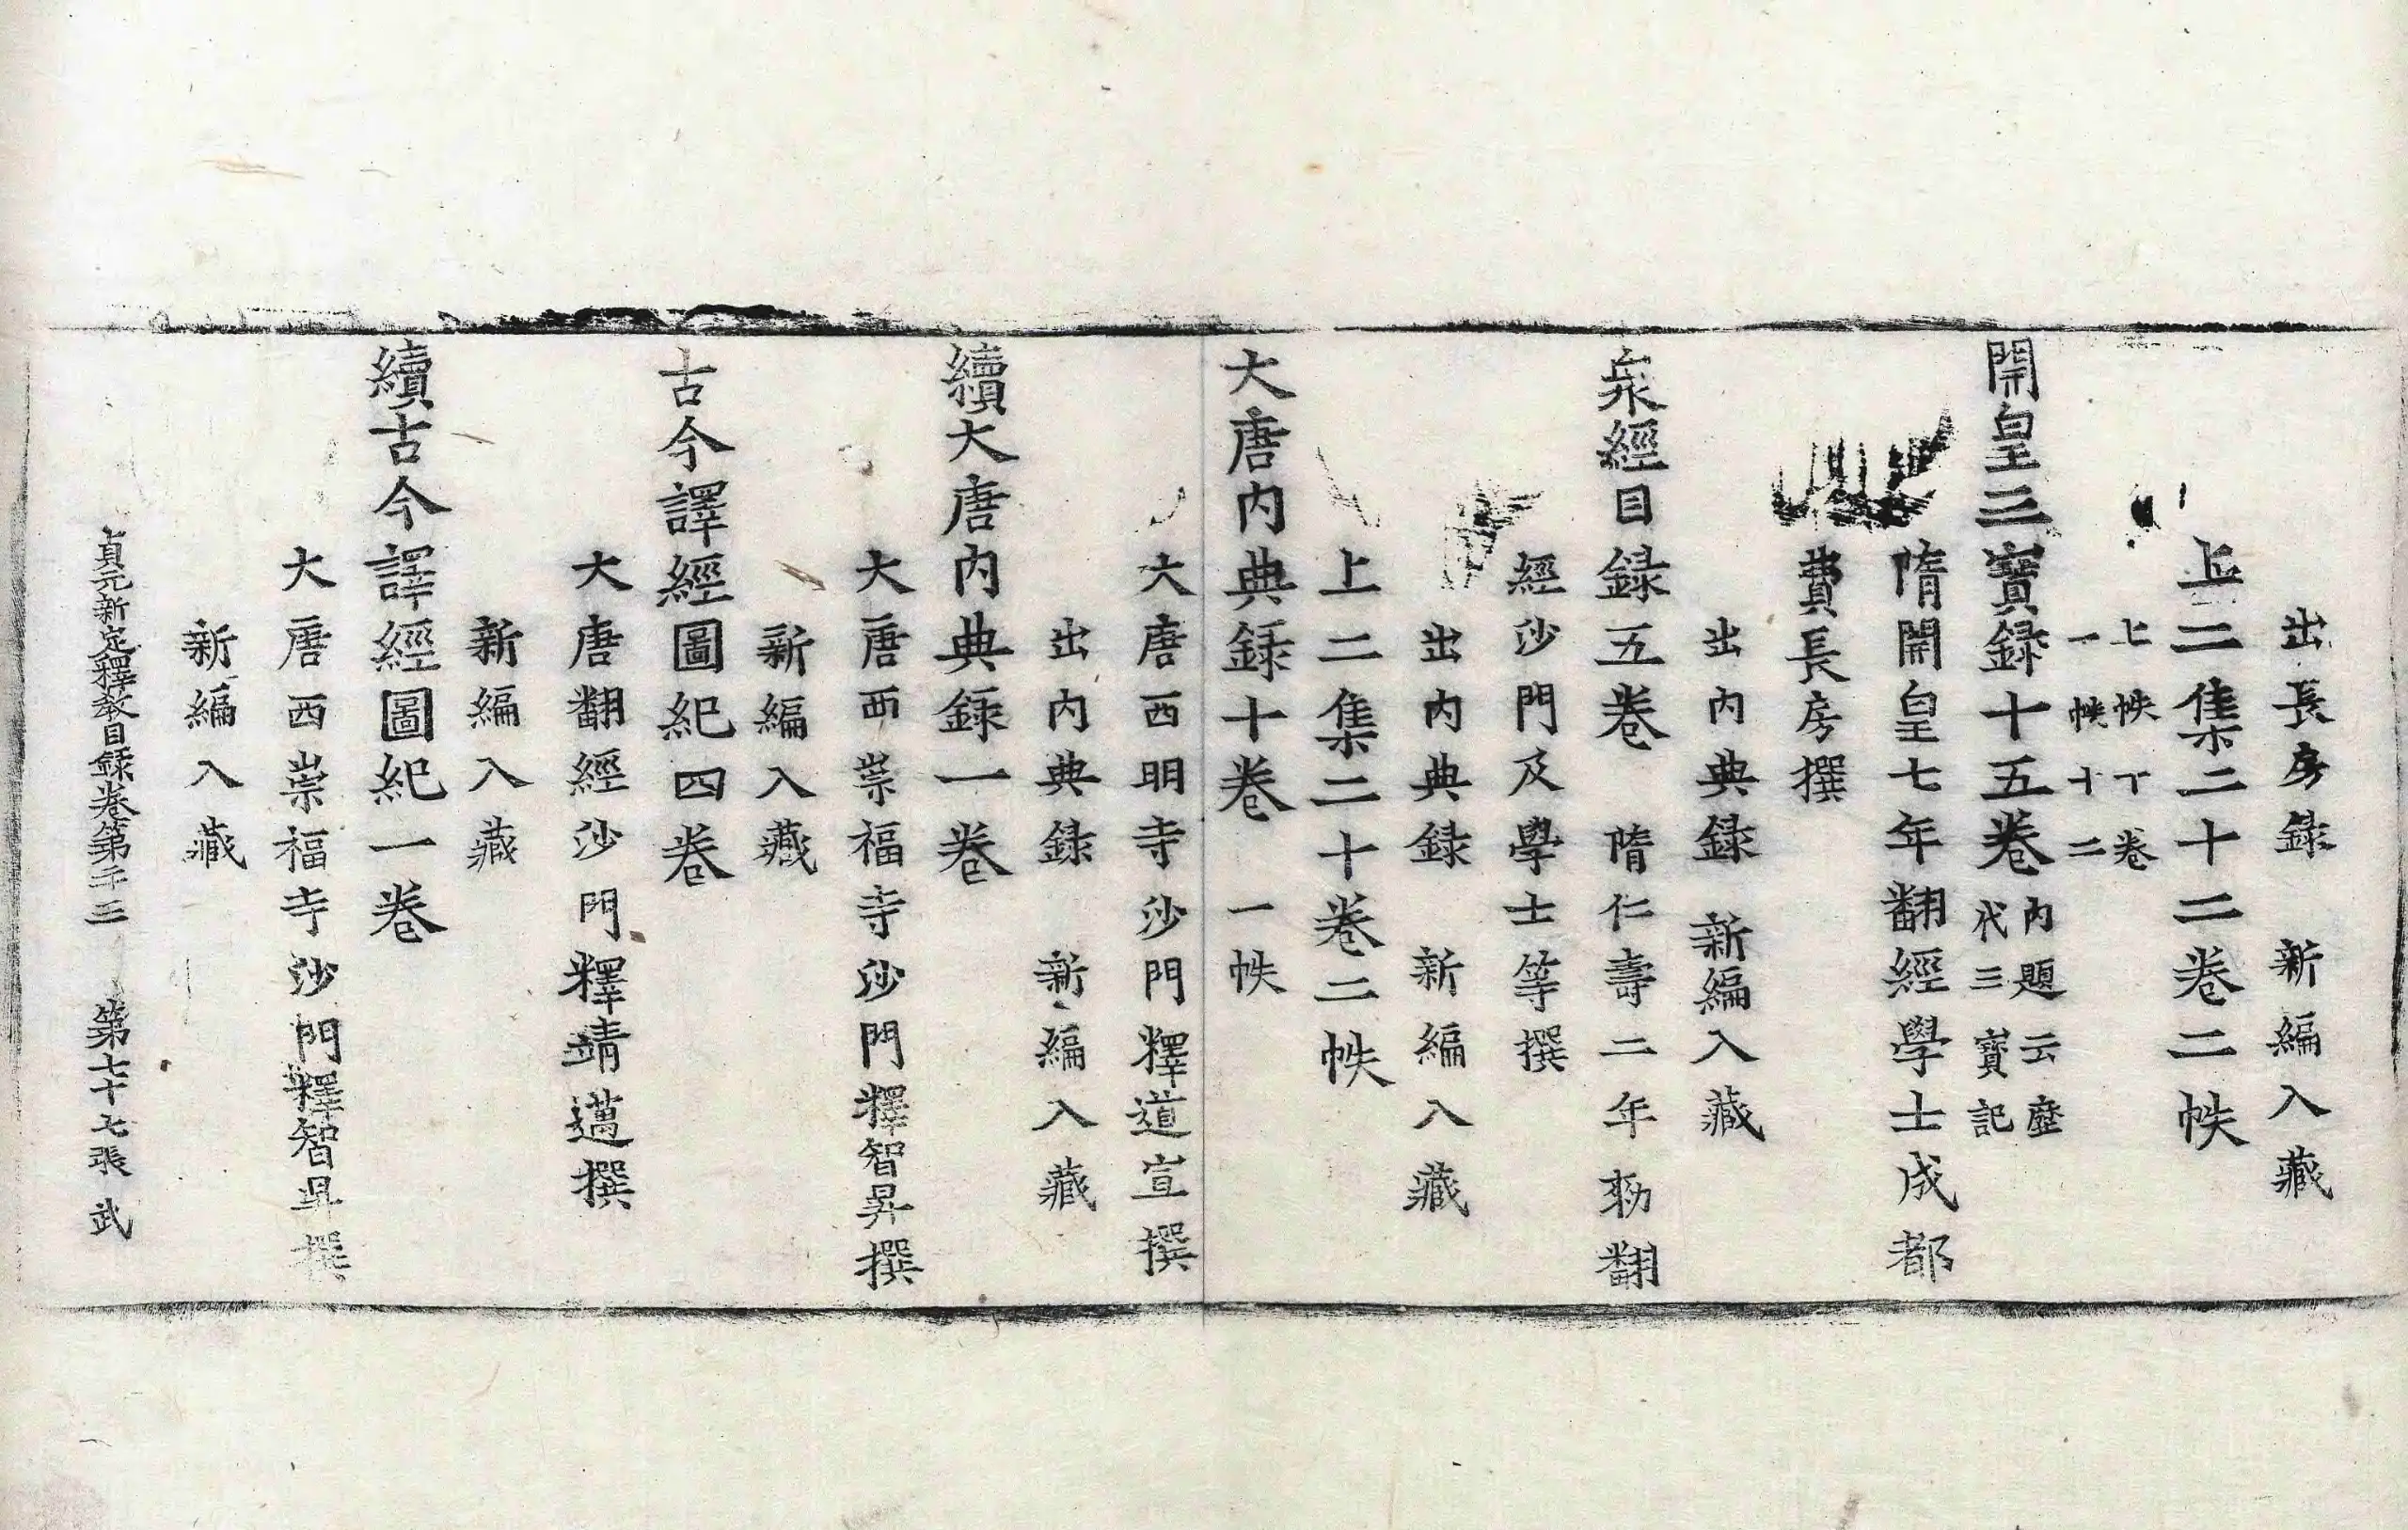 出長房録　新編入藏
上二集二十二卷二帙
上帙丅卷
一帙十二
開皇三寶録十五卷内題云歷代三寶記
隋開皇七年翻經學士成都
費長房撰
出内典録　新編入藏
衆經目録五卷　隋仁壽二年勑翻
經沙門及學士等撰
出内典録　新編入藏
上二集二十卷二帙
大唐内典録十卷　一帙
大唐西明寺沙門釋道宣撰
出内典録　新編入藏
續大唐内典録一卷
大唐西崇福寺沙門釋智昇撰
新編入藏
古今譯經圖紀四卷
大唐翻經沙門釋靖邁撰
新編入藏
續古今譯經圖紀一卷
大唐西崇福寺沙門釋智昇撰
新編入藏
貞元新定釋教目録卷第二十三　第七十七張　武